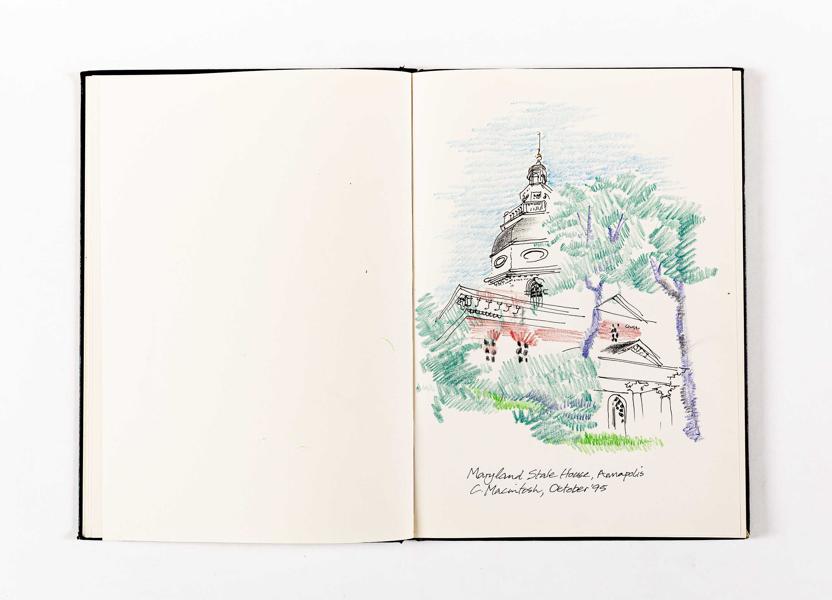 Maryland State House, Annapolis
C Macintosh, October '95